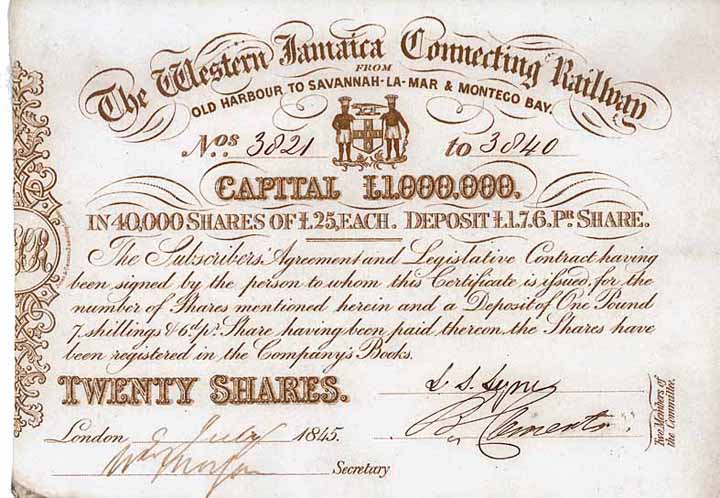 The Western Jamaica Connecting Railway
FROM
OLD HARBOUR TO SAVANNAH-LA-MAR & MONTEGO BAY.
Nos 3821 to 3840
CAPITAL £1,000,000.
IN 40,000 SHARES OF £25, EACH. DEPOSIT £1.7.6. PR SHARE.
The Subscribers' Agreement and Legislative Contract having
been signed by the person to whom this Certificate is issued, for the
number of Shares mentioned herein and a Deposit of One Pound
7, shillings & 6d pr Share having been paid thereon, the Shares have
been registered in the Company's Books.
TWENTY SHARES.
London July 1845.
Secretary
Two Members of
the Committee.